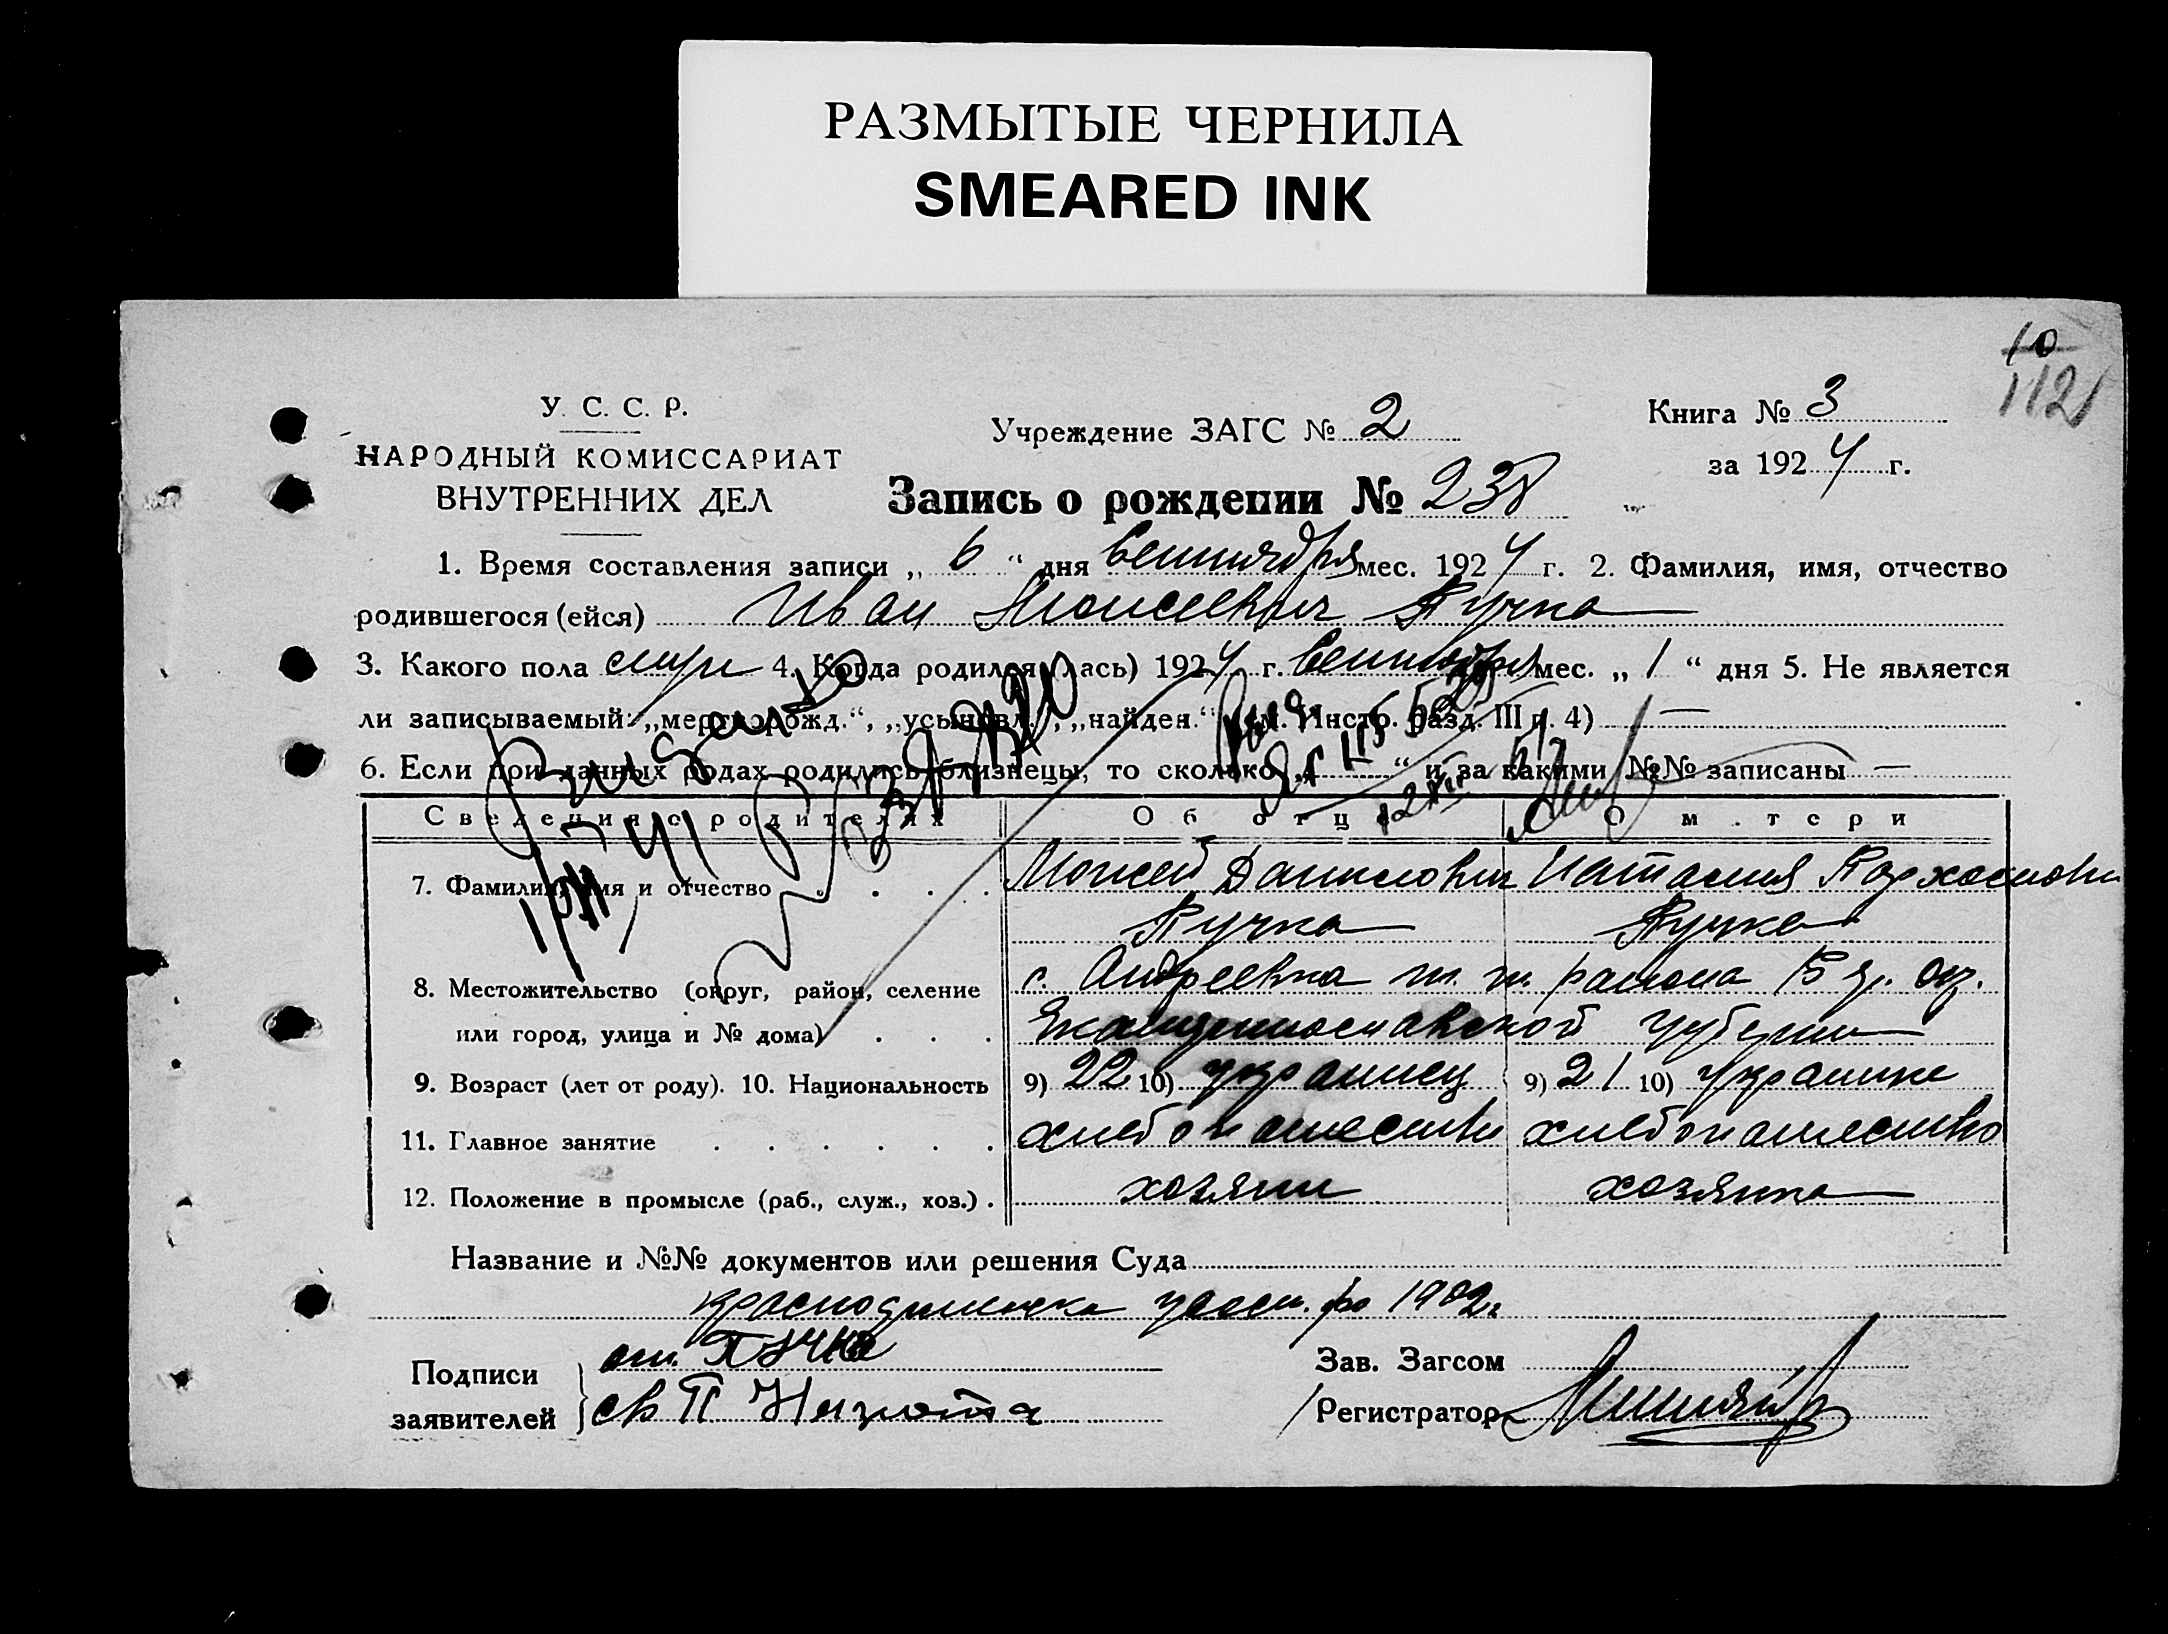 РАЗМЫТЫЕ ЧЕРНИЛА
SMEARED INK
10
112
У. С. С. Р.
НАРОДНЫЙ КОМИССАРИАТ
ВНУТРЕННИХ ДЕЛ
Учреждение ЗАГС № 2
Книга № 3
за 1924 г.
Запись о рождении № 238
1. Время составления записи „ 6 “ дня Сентября мес. 1924 г. 2. Фамилия, имя, отчество
родившегося (ейся) Иван Моисеевич Пучка
3. Какого пола 4. Когда родился (лась) 1924 г. Сентября мес. „ 1 “ дня 5. Не является
ли записываемый: „мертворожд.“, „усыновл.“, „найден.“ (см. Инстр. разд. III п. 4) —
6. Если при данных родах родились близнецы, то сколько „ “ и за какими №№ записаны —
Сведения о родителях Об отце О матери
7. Фамилия, имя и отчество Моисей Данилович Наталия
Пучка Пучка
8. Местожительство (округ, район, селение с. Андреевка района
или город, улица и № дома) Екатеринославской губернии
9. Возраст (лет от роду). 10. Национальность 9) 22 10) украинец 9) 21 10) украинка
11. Главное занятие хлебопашество хлебопашество
12. Положение в промысле (раб., служ., хоз.) хозяин хозяйка
Название и №№ документов или решения Суда
1902
Подписи
заявителей
от. Пучка
св П
Зав. Загсом
Регистратор